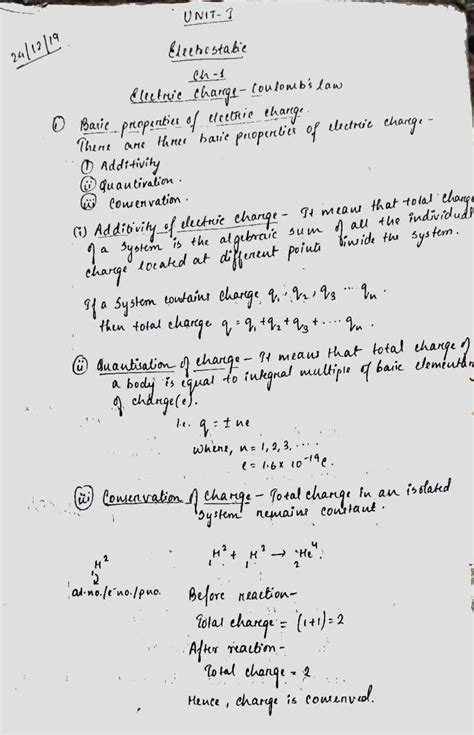 UNIT-I
24/12/19
Electrostatic
Ch-1
Electric Charge - Coulomb's law
① Basic properties of electric charge.
There are three basic properties of electric charge -
(i) Additivity
(ii) Quantization.
(iii) Conservation.
(i) Additivity of electric charge - It means that total charge
of a System is the algebraic sum of all the individual
charge located at different points inside the system.
If a System contains charge q₁, q₂, q₃ ... qₙ.
then total charge q = q₁+q₂+q₃+.... qₙ.
(ii) Quantisation of charge - It means that total charge of
a body is equal to integral multiple of basic elementar
of charge(e).
i.e. q = ± ne
where, n = 1, 2, 3, ....
e = 1.6 x 10⁻¹⁹C.
(iii) Conservation of Charge - Total charge in an isolated
System remains constant.
₁H² + ₁H² → ₂He⁴
₁H²
at.no./e⁻no./pno.
Before reaction-
Total charge = (1+1) = 2
After reaction-
Total charge = 2
Hence, charge is conserved.